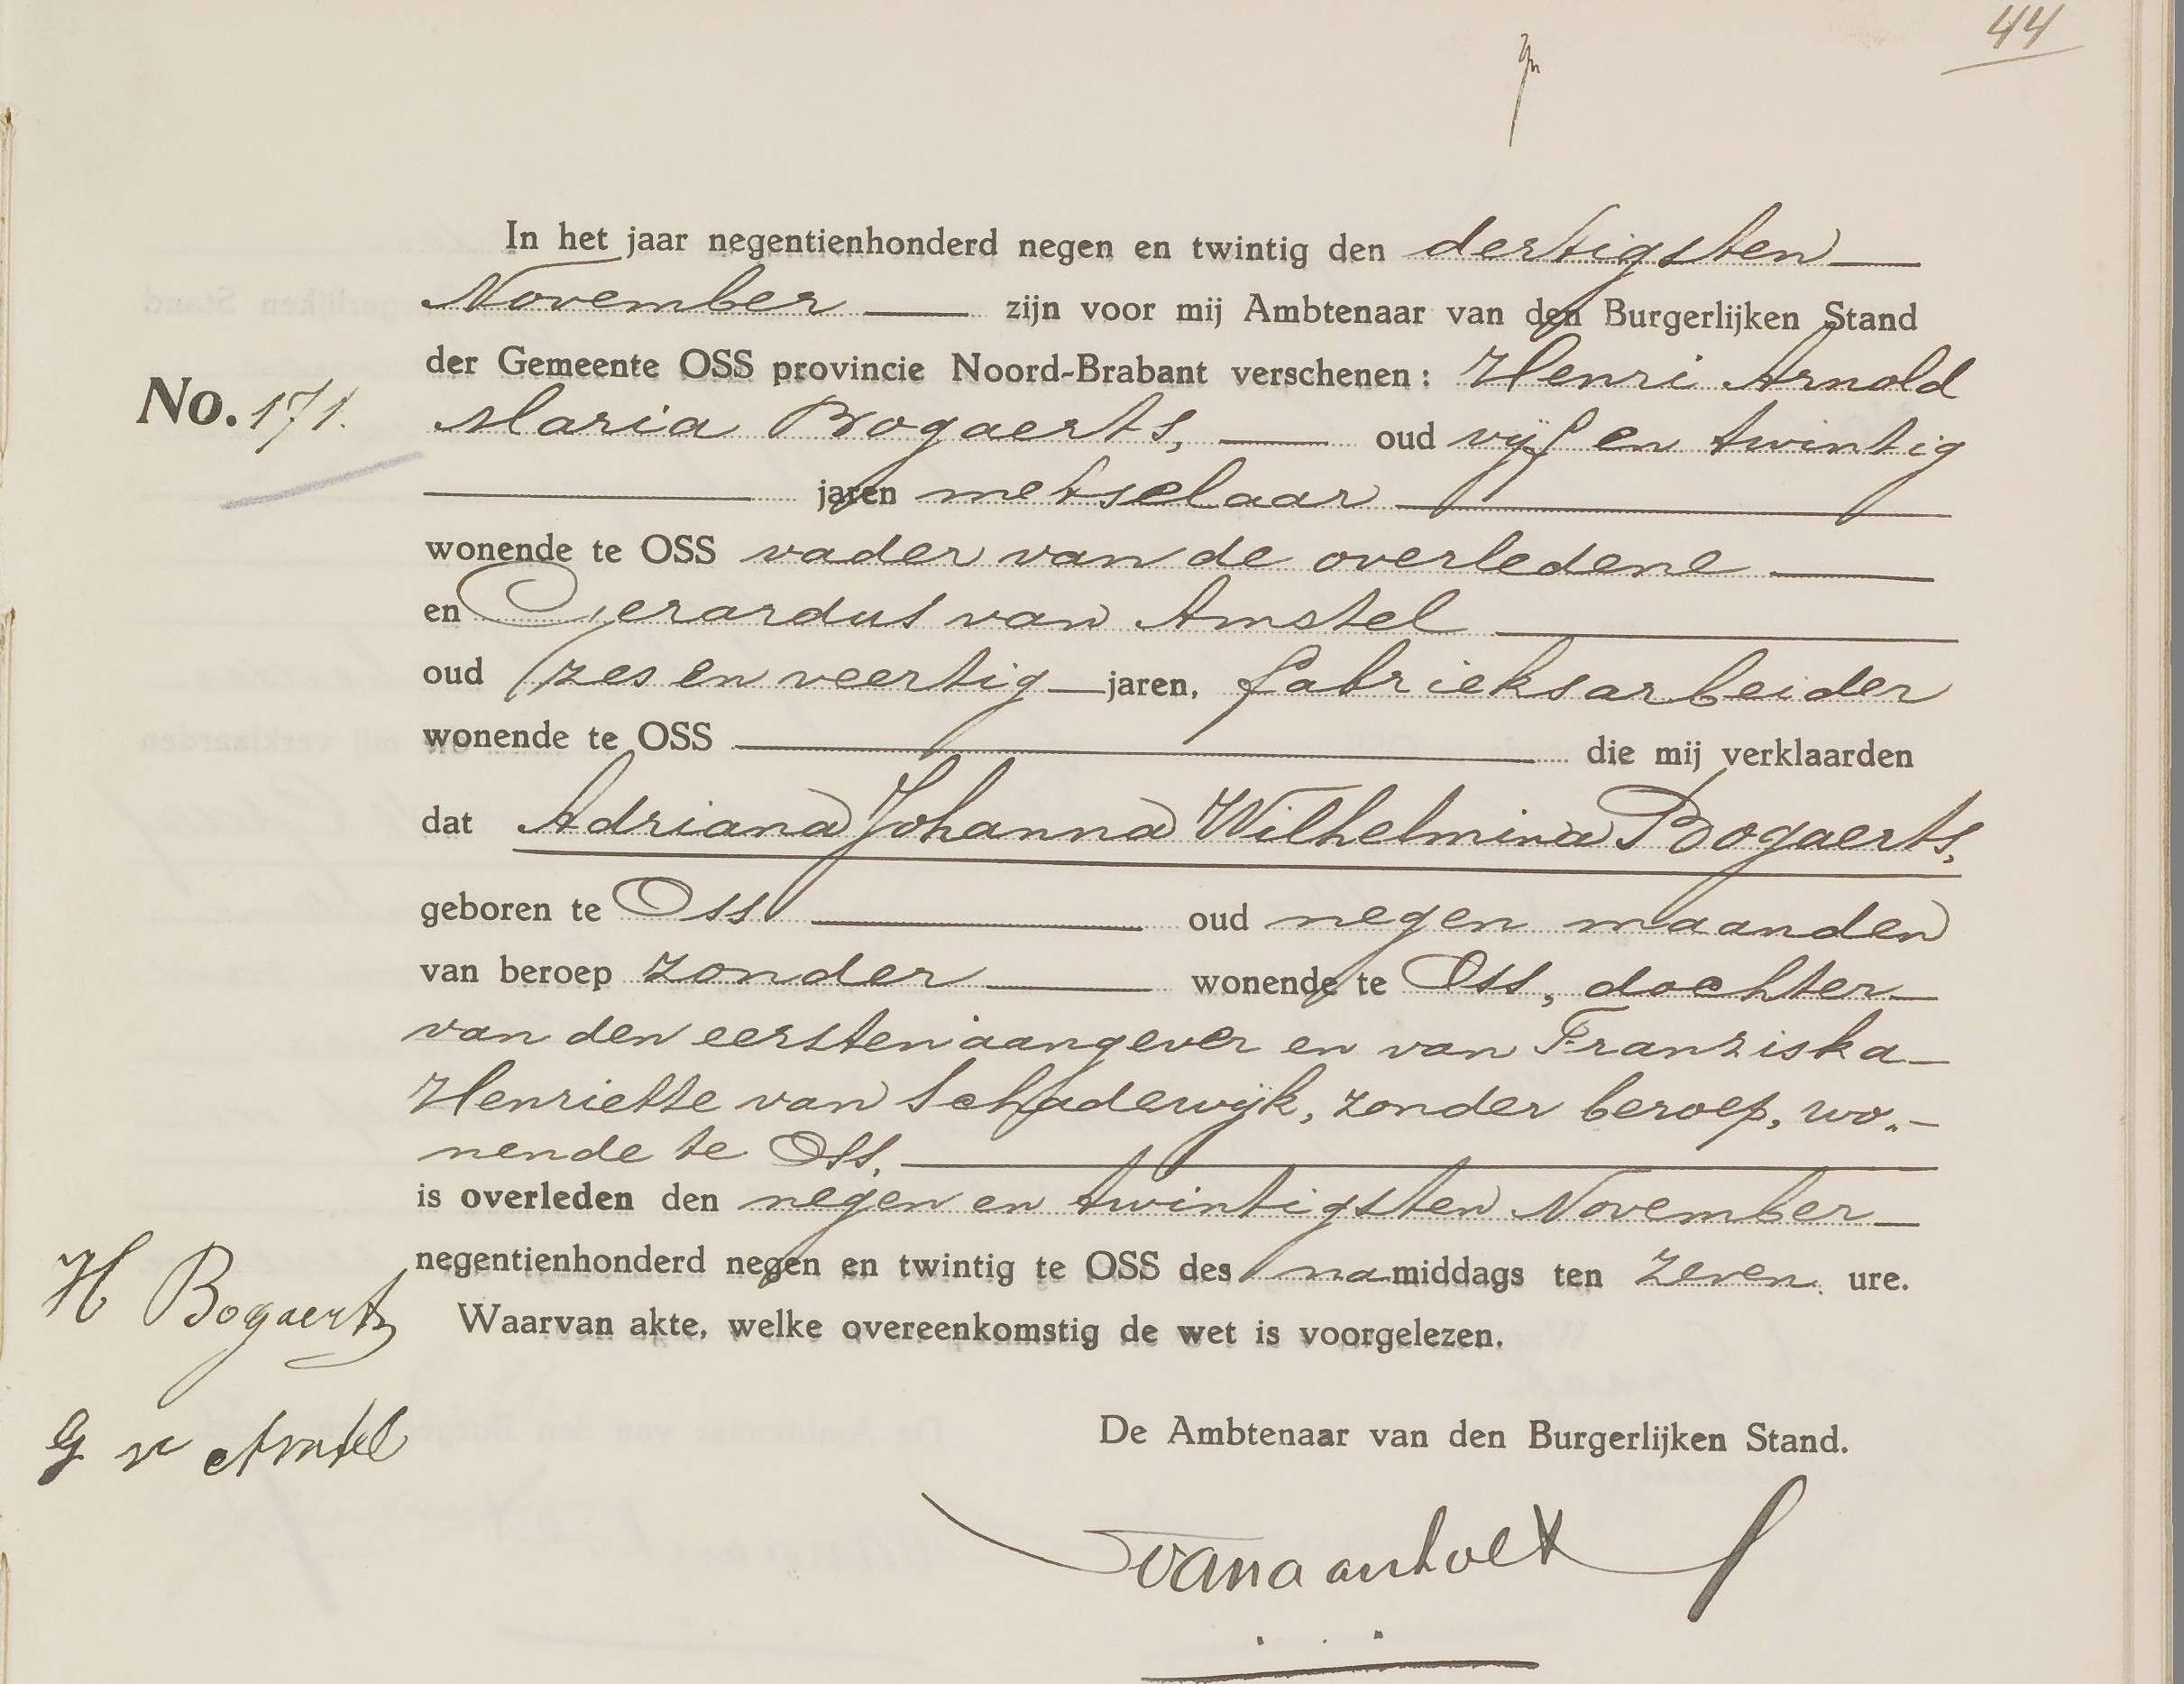 44
In het jaar negentienhonderd negen en twintig den dertigsten
November zijn voor mij Ambtenaar van den Burgerlijken Stand
der Gemeente OSS provincie Noord-Brabant verschenen: Henri Arnold
No. 171. Maria Bogaerts, oud vijf en twintig
jaren metselaar
wonende te OSS vader van de overledene
en Gerardus van Amstel
oud zes en veertig jaren, fabrieksarbeider
wonende te OSS die mij verklaarden
dat Adriana Johanna Wilhelmina Bogaerts,
geboren te Oss oud negen maanden
van beroep zonder wonende te Oss, dochter
van den eersten aangever en van Franziska
Henriette van Schadewijk, zonder beroep, wo-
nende te Oss,
is overleden den negen en twintigsten November
negentienhonderd negen en twintig te OSS des namiddags ten zeven ure.
Waarvan akte, welke overeenkomstig de wet is voorgelezen.
H Bogaerts
G v Amstel
De Ambtenaar van den Burgerlijken Stand.